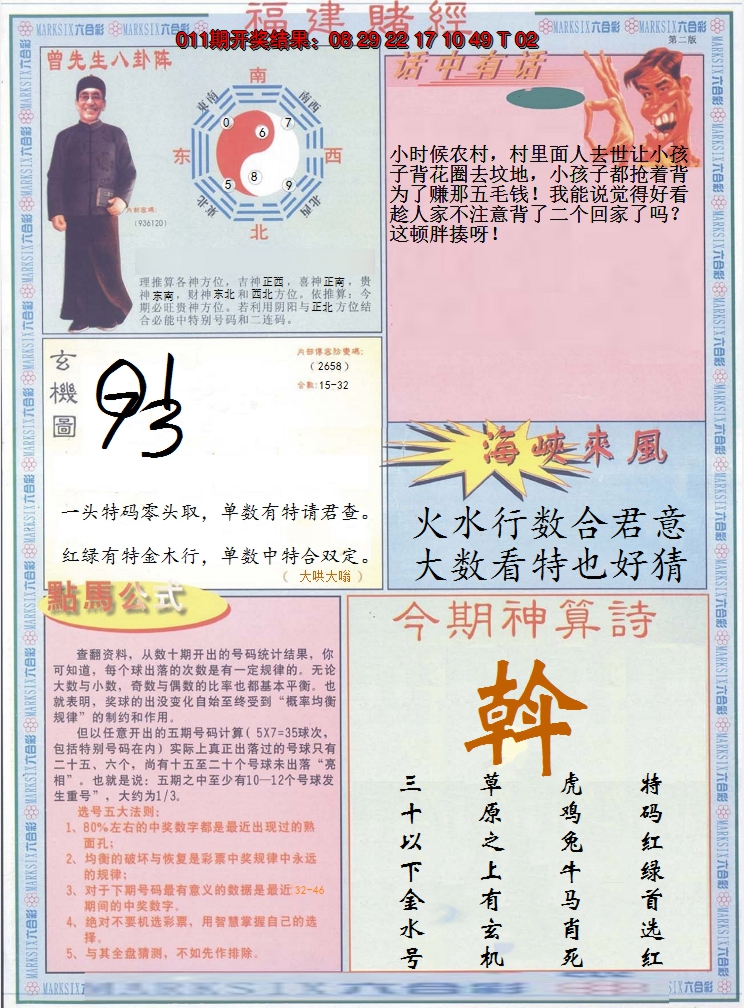 福建賭經
011期开奖结果：08 29 22 17 10 49 T 02
MARKSIX六合彩
第二版
曾先生八卦阵
南
東南
西南
0
7
6
东
西
5
8
9
東北
西北
北
内部密碼：
（936120）
理推算各神方位，吉神正西，喜神正南，贵
神东南，财神东北和西北方位。依推算：今
期必旺贵神方位。若利用阴阳与正北方位结
合必能中特别号码和二连码。
话中有话
小时候农村，村里面人去世让小孩
子背花圈去坟地，小孩子都抢着背
为了赚那五毛钱！我能说觉得好看
趁人家不注意背了二个回家了吗？
这顿胖揍呀！
玄機圖
（2658）
合数:15-32
一头特码零头取，单数有特请君查。
红绿有特金木行，单数中特合双定。
（ 大哄大嗡 ）
海峽來風
火水行数合君意
大数看特也好猜
點馬公式
查翻资料，从数十期开出的号码统计结果，你
可知道，每个球出落的次数是有一定规律的。无论
大数与小数，奇数与偶数的比率也都基本平衡。也
就表明，奖球的出没变化自始至终受到“概率均衡
规律”的制约和作用。
但以任意开出的五期号码计算（5X7=35球次，
包括特别号码在内）实际上真正出落过的号球只有
二十五、六个，尚有十五至二十个号球未出落“亮
相”。也就是说：五期之中至少有10—12个号球发
生重号”，大约为1/3。
选号五大法则：
1、80%左右的中奖数字都是最近出现过的熟
面孔；
2、均衡的破坏与恢复是彩票中奖规律中永远
的规律；
3、对于下期号码最有意义的数据是最近32-46
期间的中奖数字。
4、绝对不要机选彩票，用智慧掌握自己的选
择。
5、与其全盘猜测，不如先作排除。
今期神算詩
斡
特码红绿首选红
虎鸡兔牛马肖死
草原之上有玄机
三十以下金水号